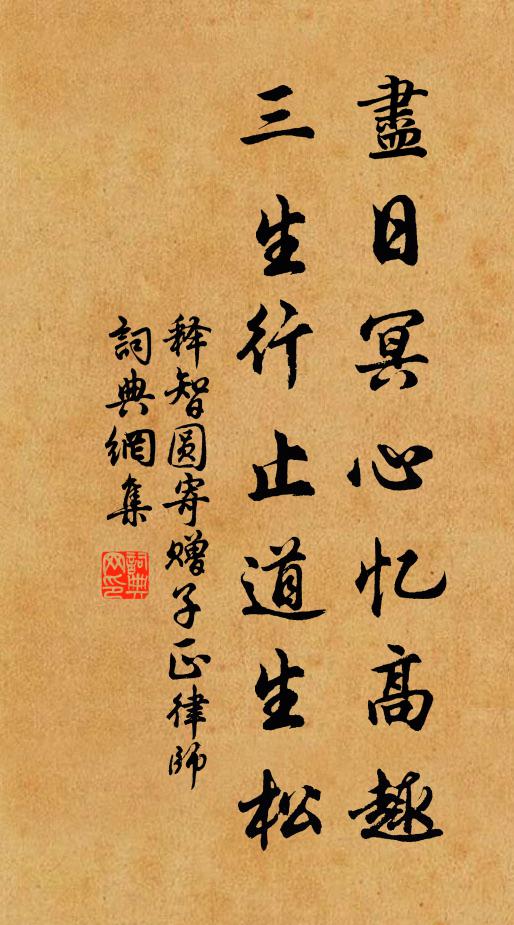 盡日冥心忆高趣
三生行止道生松
释智圆寄赠子正律師
詞典網集
詞典网印